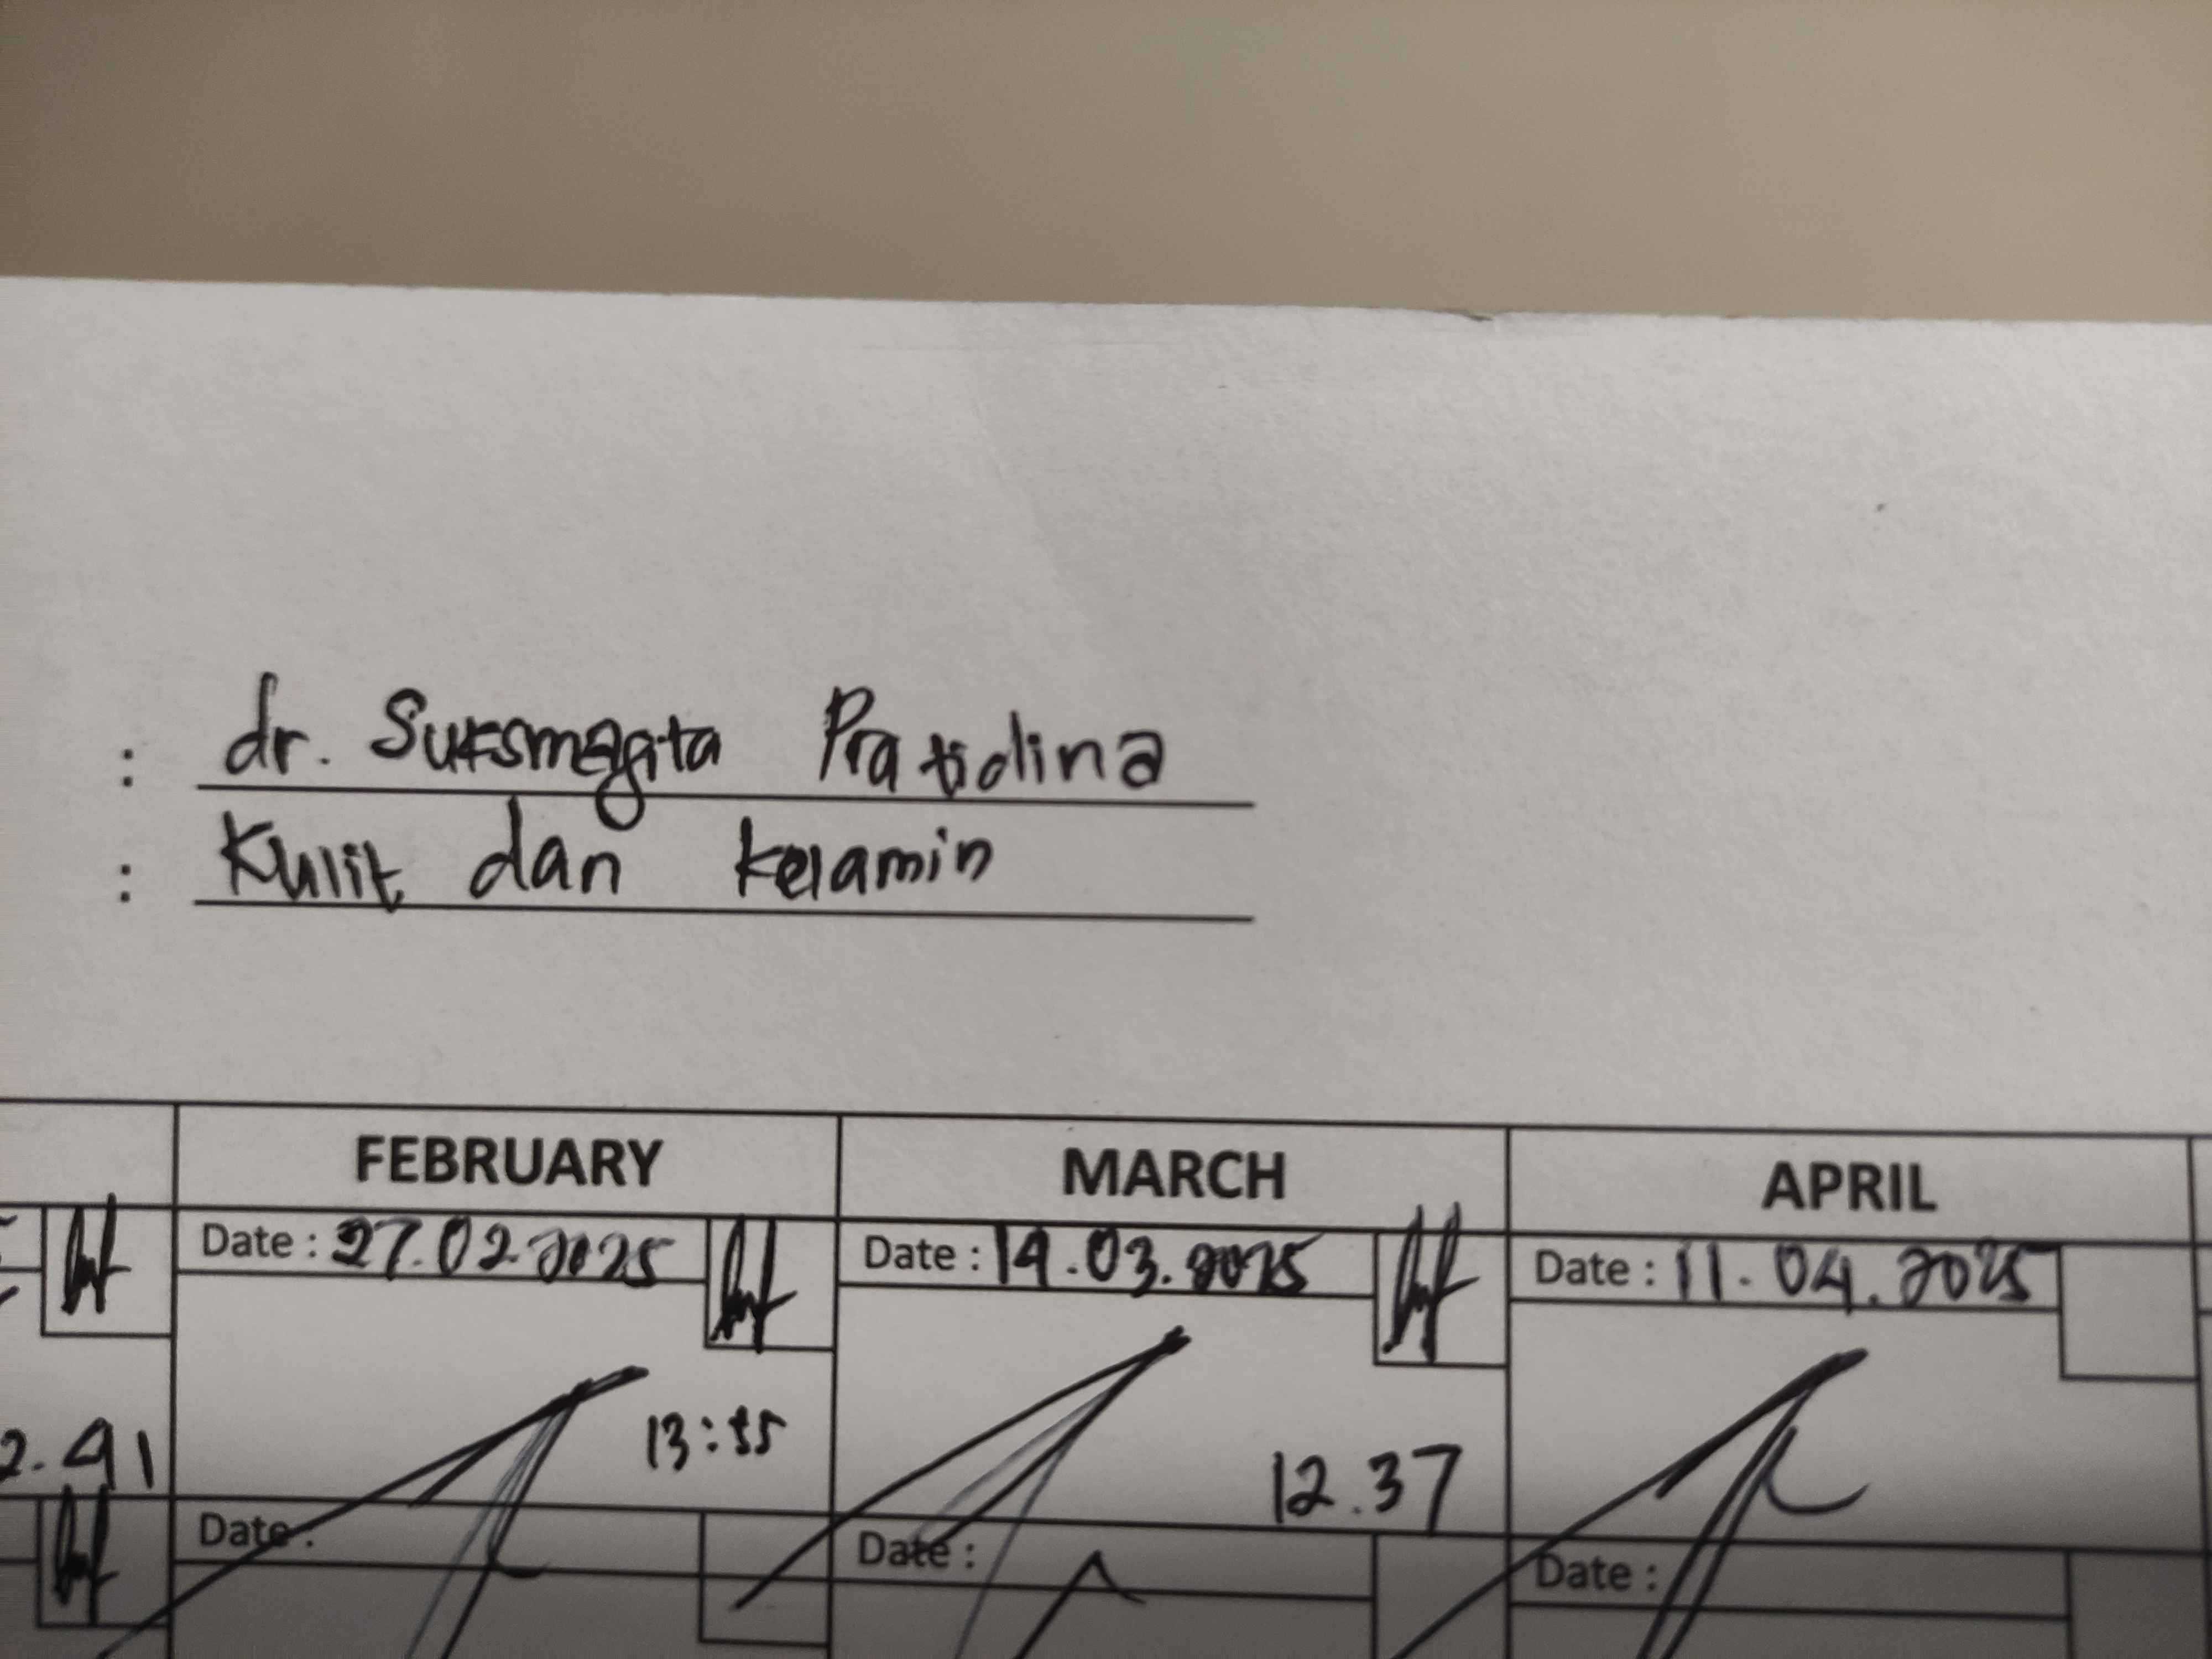 : dr. Suksmagita Pratidina
: Kulit dan kelamin
FEBRUARY MARCH APRIL
Date : 27.02.2025 Date : 14.03.2025 Date : 11.04.2025
2.41 13:55 12.37
Date : Date : Date :